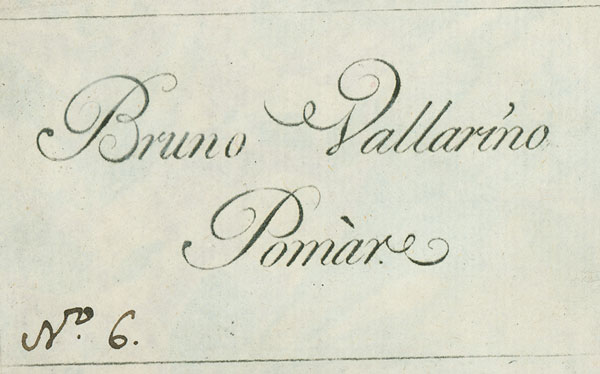 Bruno Vallaríno
Pomàr.
Nº. 6.